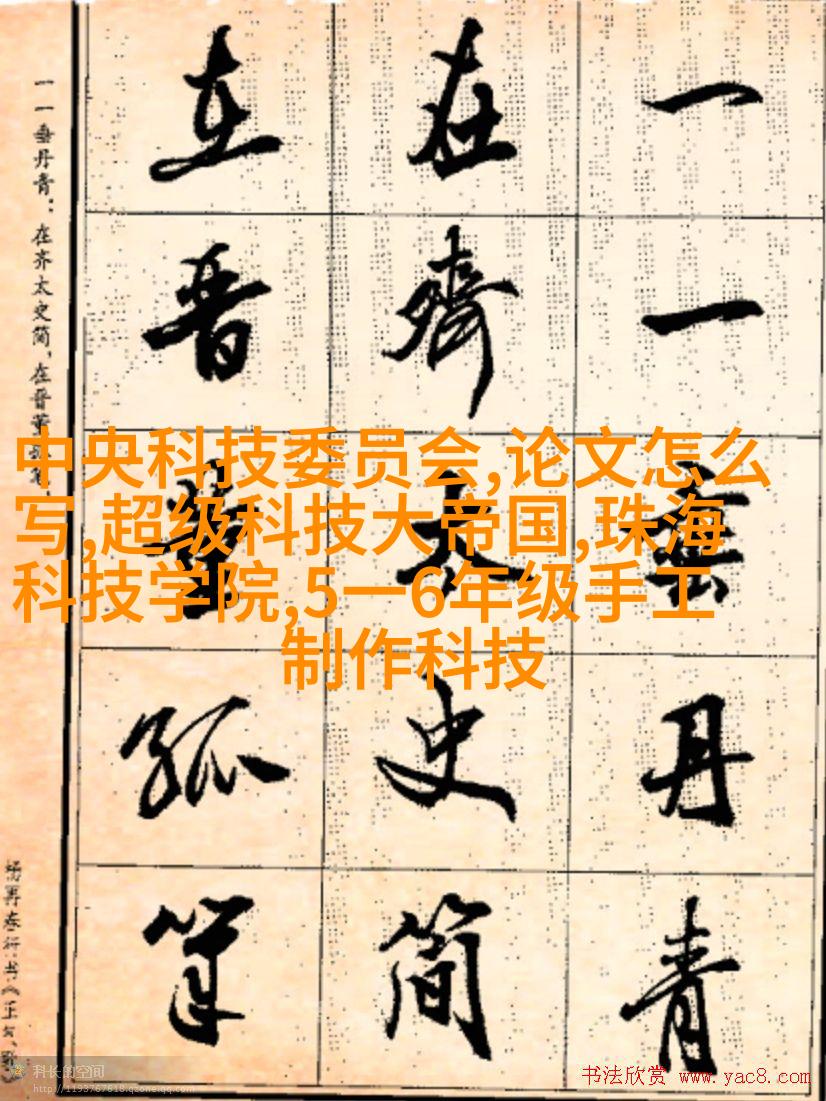 一一垂丹青
在齊太史简
在晋董狐筆
一一垂丹青：在齐太史简，在晋董狐笔。
中央科技委员会,论文怎么
写,超级科技大帝国,珠海
科技学院,5一6年级手工
制作科技
科长的空间
http://1193767618.qzone.qq.com
书法欣赏 www.yac8.com